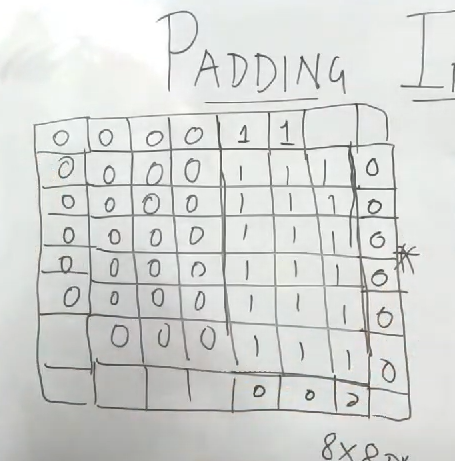 PADDING
0 0 0 0 1 1
0 0 0 0 1 1 1 0
0 0 0 0 1 1 1 0
0 0 0 0 1 1 1 0 *
0 0 0 0 1 1 1 0
0 0 0 0 1 1 1 0
0 0 0 1 1 1 0
0 0 0
8x8